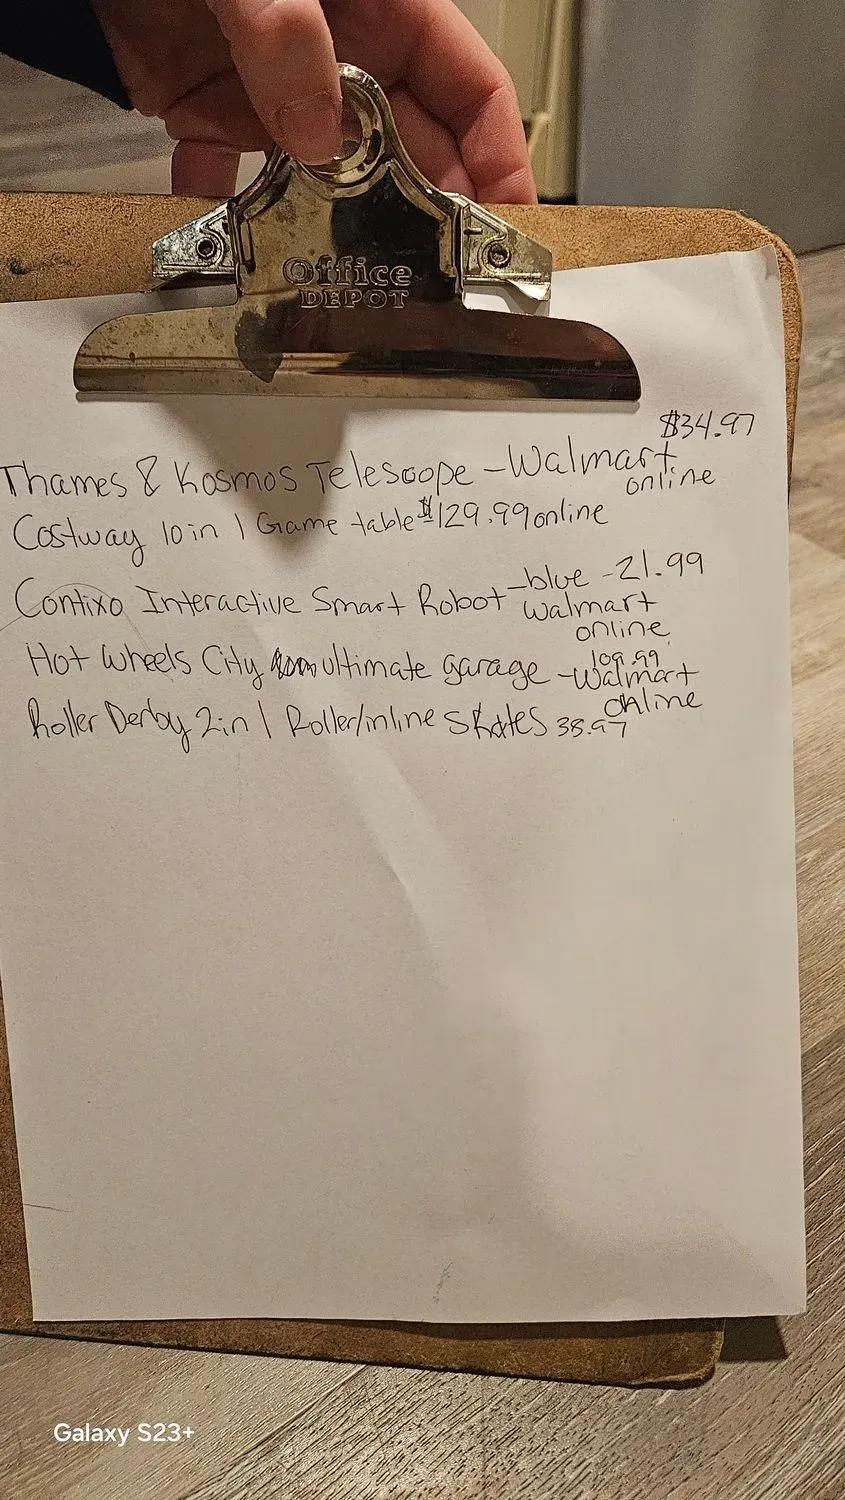 Office
DEPOT
$34.97
Thames & Kosmos Telescope - Walmart
online
Costway 10 in 1 Game table $129.99 online
Contixo Interactive Smart Robot - blue - 21.99
walmart
online
Hot Wheels City ultimate garage - Walmart
109.99
online
Roller Derby 2 in 1 Roller/inline Skates 38.97
Galaxy S23+